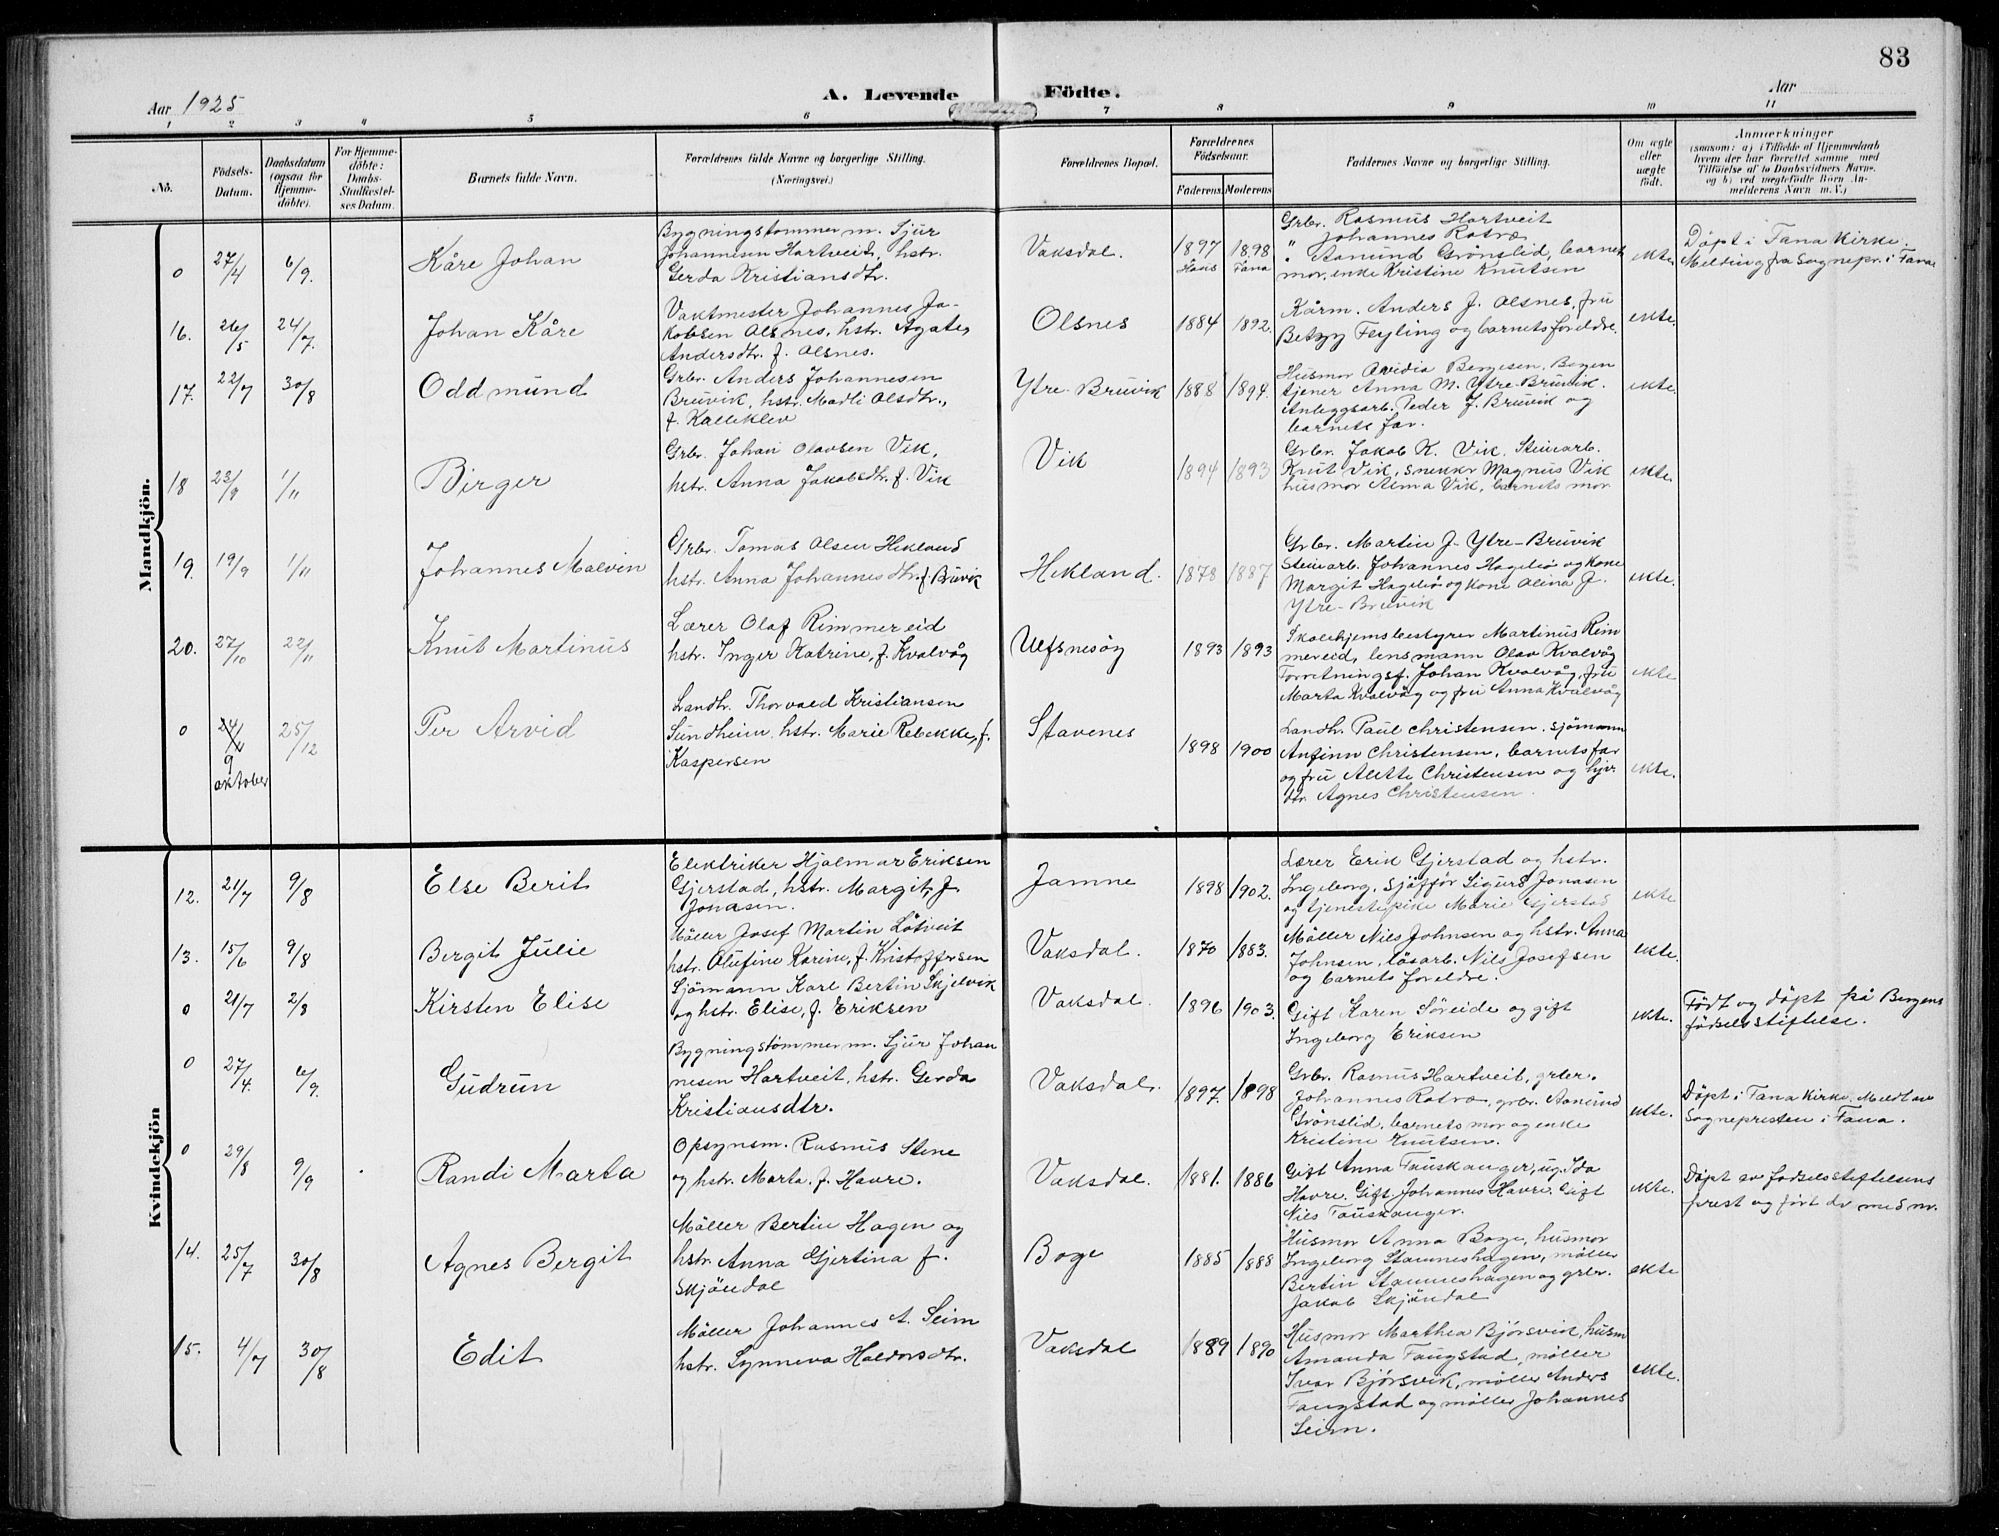 83
Aar 1925
A. Levende Födte.
Aar
1 2 3 4 5 6 7 8 9 10 11
No.
Födsels-
Datum.
Daabsdatum
(ogsaa for
Hjemme-
döbte).
For Hjemme-
döbte:
Daabs-
Stadfæstel-
ses Datum.
Barnets fulde Navn.
Forældrenes fulde Navne og borgerlige Stilling.
(Næringsvei.)
Forældrenes Bopæl.
Forældrenes
Födselsaar.
Faderens. Moderens
Faddernes Navne og borgerlige Stilling.
Om ægte
eller
uægte
födt.
Anmærkninger
(saasom: a) i Tilfælde af Hjemmedaab
hvem der har forrettet samme med
Tilföielse af to Daabsvidners Navne.
og b) ved uægtefödte Börn An-
melderens Navn m. V.)
Mandkjön.
0 27/4 6/9. Kåre Johan
Bygningstömmer m. Sjur
Johannesen Hartveit, hstr.
Gerda Kristiansdtr.
Vaksdal. 1897 1898 Fana
Grbr. Rasmus Hartveit
" Johannes Rotvæ
" Aamund Grönslid, barnets
mor, enke Kristine Knutsen
ekte.
Döpt i Fana Kirke.
Melding fra Sognepr. i Fana
16. 26/5 24/7. Johan Kåre
Vaktmester Johannes Ja-
kobsen Olsnes, hstr. Agate,
Andersdtr. f. Olsnes.
Olsnes 1884 1892.
Kårm. Anders J. Olsnes, fru
Betzy Feyling og barnets foreldre.
ekte.
17. 22/7 30/8 Oddmund
Grbr. Anders Johannesen
Bruvik, hstr. Madli Olsdtr.,
f. Kalleklev
Ytre-Bruvik 1888 1894.
Husmor Avidia Bergesen, Bergen
tjener Anna M. Ytre-Bruvik.
Anleggsarb. Peder J. Bruvik og
barnets far.
ekte.
18 23/9 1/11 Birger
Grbr. Johan Olavsen Vik,
hstr. Anna Jakobsdtr. f. Vik
Vik 1894 1893
Grbr. Jakob K. Vik, Steinarb.
Knut Vik, snekkr Magnus Vik
husmor Alma Vik, barnets mor
ekte.
19. 19/9 1/11 Johannes Malvin
Grbr. Tomas Olsen Hekland
hstr. Anna Johannesdtr. f. Bruvik
Hekland. 1878 1887
Grbr. Martin J. Ytre-Bruvik
Steinarb. Johannes Hageliö og kone
Margit Hageliö og kone Olina J.
Ytre-Bruvik
ekte.
20. 27/10 22/11 Knut Martinus
Lærer Olaf Rimmereid
hstr. Inger Katrine, f. Kvalvåg
Ulfsnesöy 1893 1893
Skolehjemsbestyrer Martinus Rim
mereid, lensmann Olav Kvalvåg
Forretningsf. Johan Kvalvåg, fru
Marta Kvalvåg og fru Anna Kvalvåg
ekte.
0 24/12 25/12 Per Arvid
9
oktober
Landh. Thorvald Kristiansen
Sundheim, hstr. Marie Rebekke, f.
Kaspersen
Stavenes 1898 1900
Landh. Paul Christensen, sjömann
Anfinn Christensen, barnets far
og fru Alette Christensen og hjv.
dtr. Agnes Christensen.
ekte.
Kvindekjön
12. 21/7 9/8 Else Berit
Elektriker Hjalmar Eriksen
Gjerstad, hstr. Margit, f.
Jonasen.
Jamne 1898 1902.
Lærer Erik Gjerstad og hstr.
Ingeborg, sjåffør Sigurd Jonasen
og tjenestepike Marie Gjerstad
ekte
13. 15/6 9/8 Bergit Julie
Möller Josef Martin Lötveit
hstr. Olufine Karine, f. Kristoffersen
Vaksdal. 1870 1883.
Möller Nils Johnsen og hstr. Anna
Johnsen, lösarb. Nils Josefsen
og barnets foreldre.
ekte.
0 21/7 2/8 Kirsten Elise
Sjömann Karl Bertin Skjelvik
og hstr. Elise, f. Eriksen
Vaksdal. 1896 1903.
Gift Karen Söreide og gift
Ingeborg Eriksen
ekte.
Födt og döpt på Bergens
födselsstiftelse.
0 27/4. 6/9. Gudrun
Bygningstömmer m. Sjur Johan
nesen Hartveit, hstr. Gerda
Kristiansdtr.
Vaksdal. 1897. 1898
Grbr. Rasmus Hartveit, grbr.
Johannes Rotvæ, grbr. Aamund
Grönslid, barnets mor og enke
Kristine Knutsen.
ekte.
Döpt i Fana Kirke. Meldt av
Sognepresten i Fana.
0 29/8 9/9 Randi Marta
Opsynsm. Rasmus Stene
og hstr. Marta, f. Havre.
Vaksdal. 1881. 1886
Gift Anna Fauskanger, ug. Ida
Havre. Gift Johannes Havre. Gift
Nils Fauskanger.
ekte.
Döpt av födselsstiftelsens
prest og fört av med nr.
14. 25/7 30/8 Agnes Bergit
Möller Bertin Hagen og
hstr. Anna Gjertina f.
Skjöndal
Boge 1885 1888
Husmor Anna Boge, husmor
Ingeborg Stamneshagen, möller
Bertin Stamneshagen og grbr.
Jakob Skjöndal
ekte
15. 4/7 30/8 Edit
Möller Johannes A. Seim
hstr. Synneva Haldorsdtr.
Vaksdal 1889 1890
Husmor Marthea Björsvik, husm
Amanda Faugstad, möller
Ivar Björsvik, möller Anders
Faugstad og möller Johannes
Seim.
ekte.